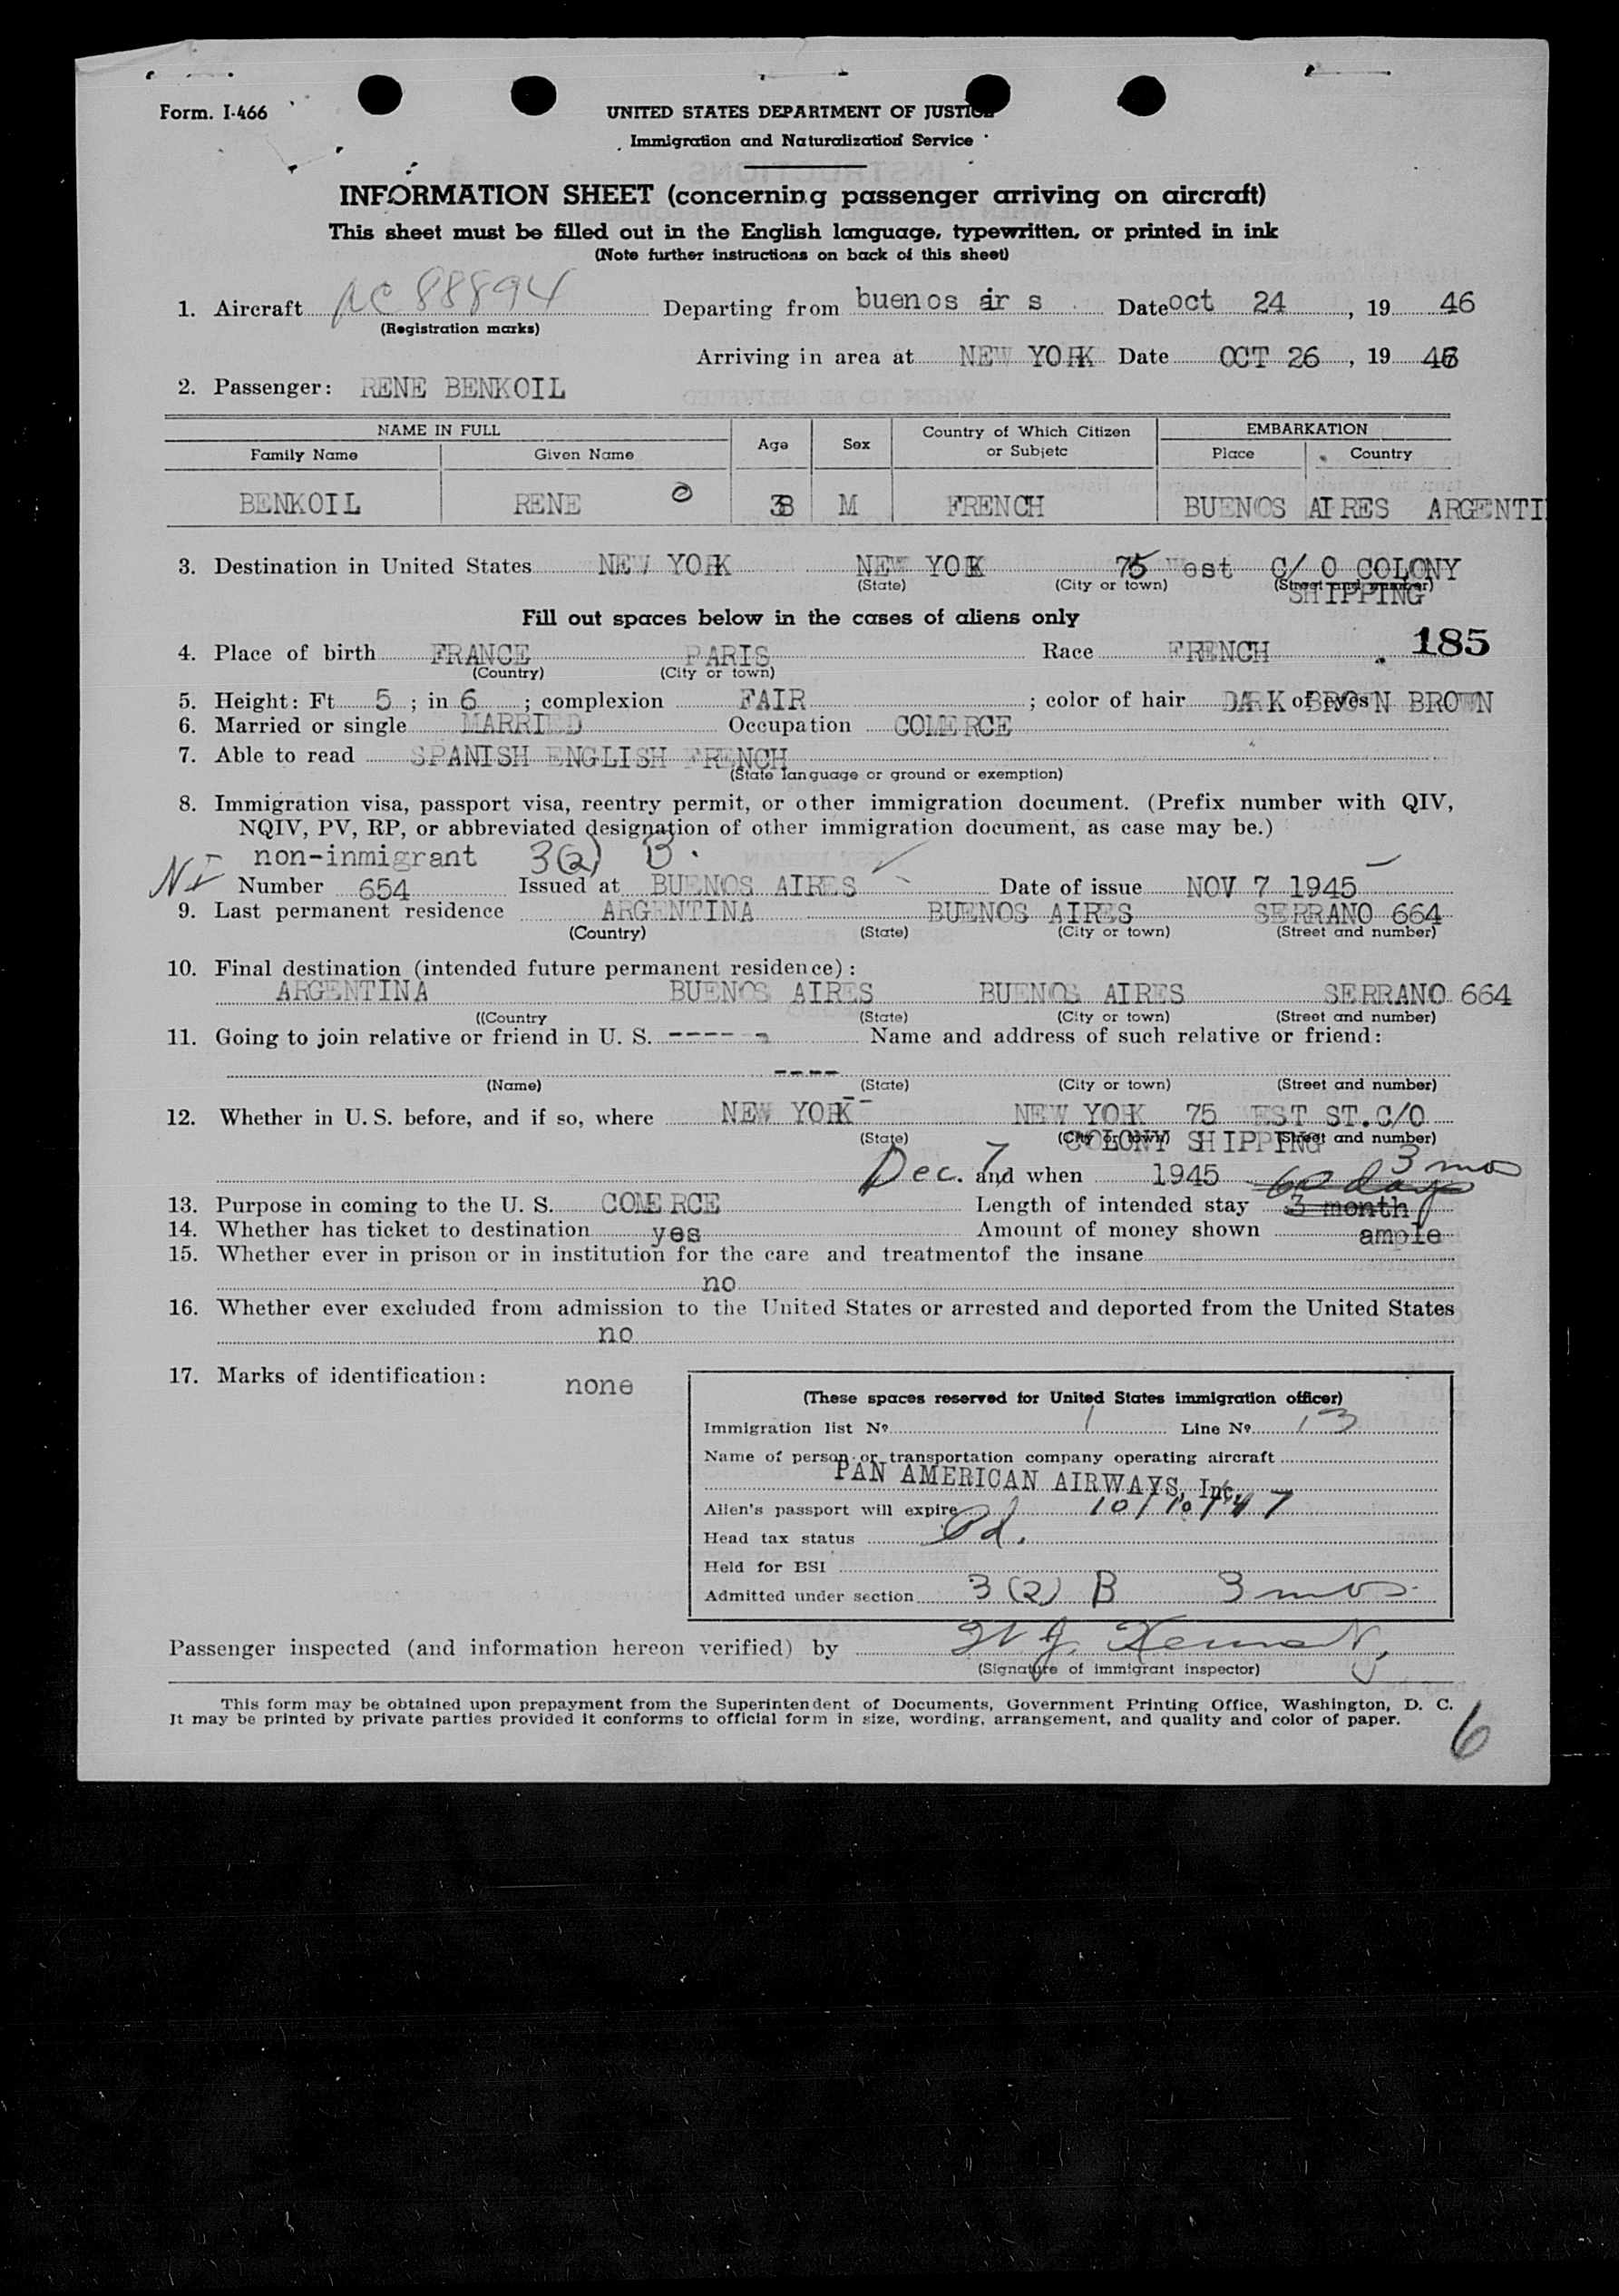 Form. I-466
UNITED STATES DEPARTMENT OF JUSTICE
Immigration and Naturalization Service
INFORMATION SHEET (concerning passenger arriving on aircraft)
This sheet must be filled out in the English language, typewritten, or printed in ink
(Note further instructions on back of this sheet)
1. Aircraft NC 88894 Departing from buenos air s Date oct 24, 19 46
(Registration marks)
Arriving in area at NEW YORK Date OCT 26, 19 46
2. Passenger: RENE BENKOIL
NAME IN FULL Age Sex Country of Which Citizen or Subjetc EMBARKATION
Family Name Given Name Place Country
BENKOIL RENE 0 38 M FRENCH BUENOS AIRES ARGENTI
3. Destination in United States NEW YORK NEW YORK 75 West C/ O COLONY
(State) (City or town) (Street and number)
SHIPPING
Fill out spaces below in the cases of aliens only
4. Place of birth FRANCE PARIS Race FRENCH 185
(Country) (City or town)
5. Height: Ft 5; in 6; complexion FAIR; color of hair DARK BROWN of eyes BROWN
6. Married or single MARRIED Occupation COMERCE
7. Able to read SPANISH ENGLISH FRENCH
(State language or ground or exemption)
8. Immigration visa, passport visa, reentry permit, or other immigration document. (Prefix number with QIV,
NQIV, PV, RP, or abbreviated designation of other immigration document, as case may be.)
non-inmigrant 3(2) B.
NI Number 654 Issued at BUENOS AIRES Date of issue NOV 7 1945
9. Last permanent residence ARGENTINA BUENOS AIRES SERRANO 664
(Country) (State) (City or town) (Street and number)
10. Final destination (intended future permanent residence):
ARGENTINA BUENOS AIRES BUENOS AIRES SERRANO 664
((Country (State) (City or town) (Street and number)
11. Going to join relative or friend in U. S. ----- Name and address of such relative or friend:
----
(Name) (State) (City or town) (Street and number)
12. Whether in U. S. before, and if so, where NEW YORK NEW YORK 75 WEST ST. C/O
(State) (City or town) (Street and number)
COLONY SHIPPING
Dec. 7 and when 1945 60 days 3 mos
13. Purpose in coming to the U. S. COMERCE Length of intended stay 3 month
14. Whether has ticket to destination yes Amount of money shown ample
15. Whether ever in prison or in institution for the care and treatmentof the insane
no
16. Whether ever excluded from admission to the United States or arrested and deported from the United States
no
17. Marks of identification: none
(These spaces reserved for United States immigration officer)
Immigration list № 1 Line № 13
Name of person or transportation company operating aircraft
PAN AMERICAN AIRWAYS, Inc.
Alien's passport will expire 10/10/47
Head tax status Pd.
Held for BSI
Admitted under section 3 (2) B 3 mos.
Passenger inspected (and information hereon verified) by
(Signature of immigrant inspector)
This form may be obtained upon prepayment from the Superintendent of Documents, Government Printing Office, Washington, D. C.
It may be printed by private parties provided it conforms to official form in size, wording, arrangement, and quality and color of paper.
6